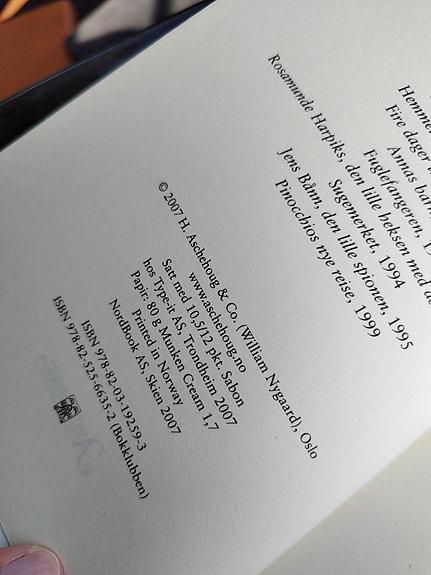 Hemme
Fire dager
Annas bar
Fuglefangeren, 1
Sugemerket, 1994
Rosamunde Harpiks, den lille heksen med de
Jens Bånn, den lille spionen, 1995
Pinocchios nye reise, 1999
© 2007 H. Aschehoug & Co. (William Nygaard), Oslo
www.aschehoug.no
Satt med 10,5/12 pkt. Sabon
hos Type-it AS, Trondheim 2007
Papir: 80 g Munken Cream 1,7
Printed in Norway
NordBook AS, Skien 2007
ISBN 978-82-03-19259-3
ISBN 978-82-525-6635-2 (Bokklubben)